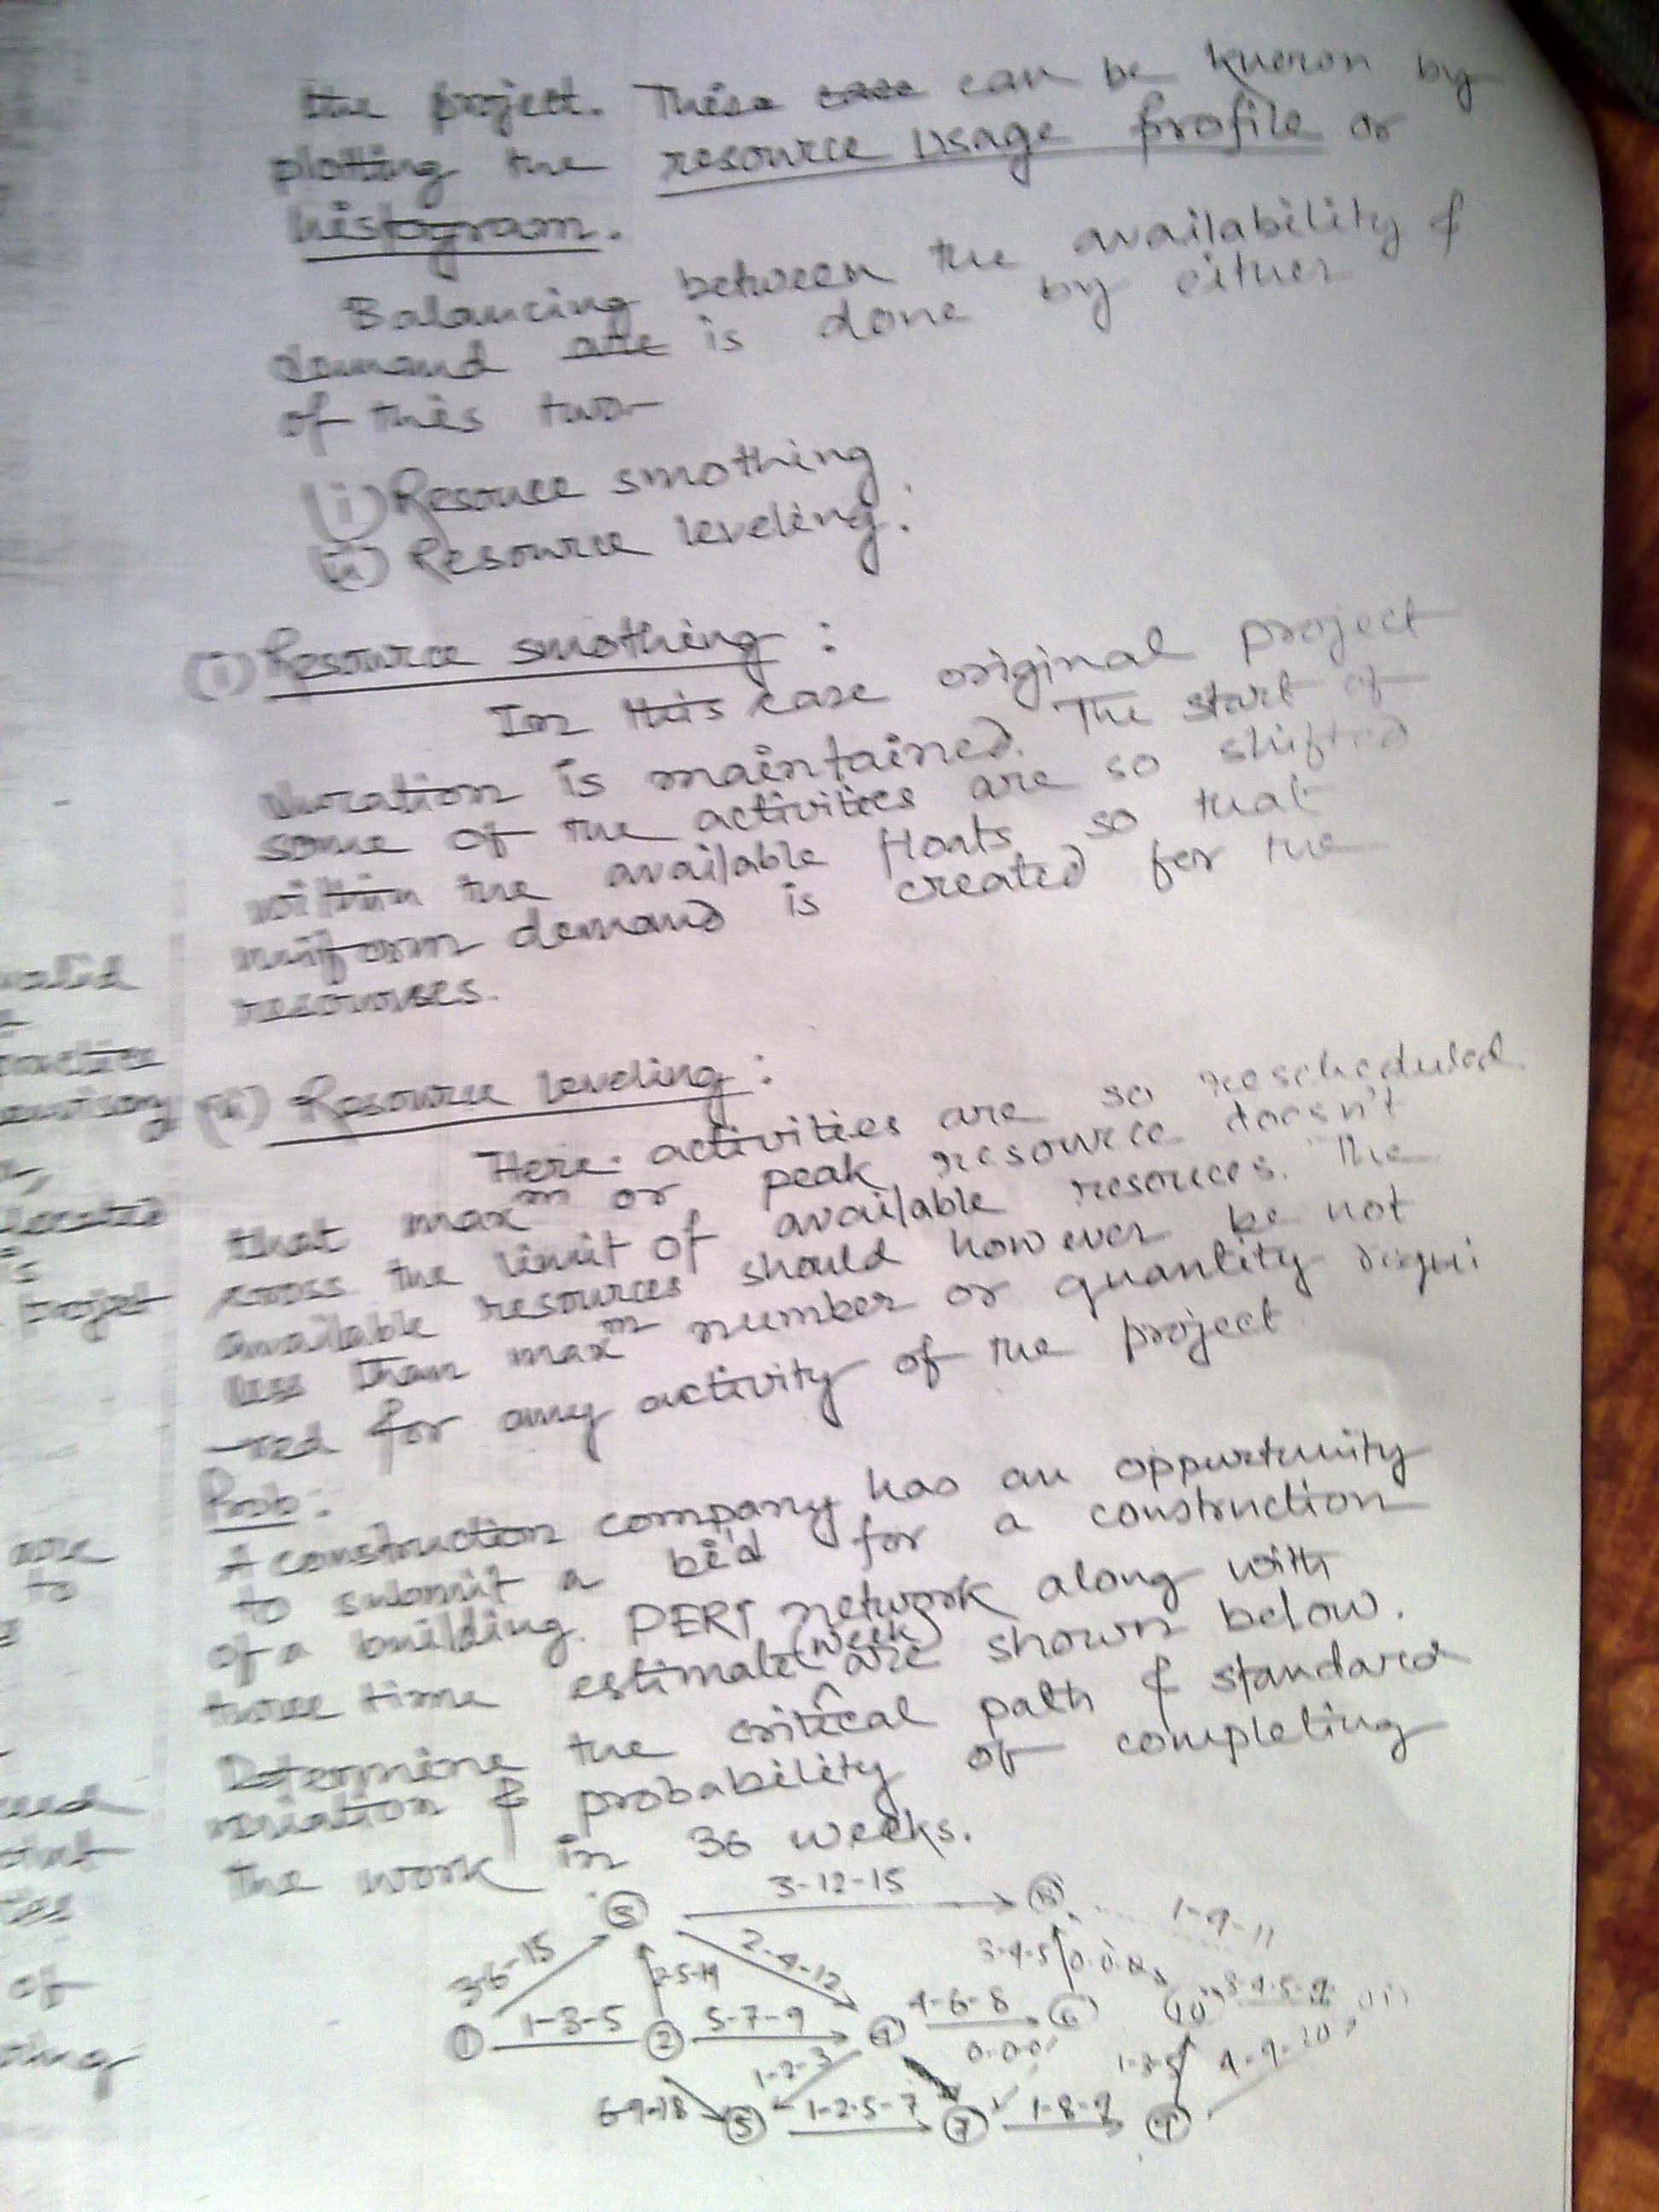 the project. These can be known by
plotting the resource usage profile or
histogram.
Balancing between the availability &
demand are is done by either
of this two-
(i) Resouce smothing
(ii) Resource leveling.
(i) Resource smothing :
In this case original project
duration is maintained. The start of
some of the activities are so shifted
within the available floats so that
uniform demand is created for the
resourses.
(ii) Resource leveling :
Here activities are so rescheduled
that maxm or peak resource doesn't
cross the limit of available resouces. The
available resources should however be not
less than maxm number or quantity requi
-red for any activity of the project.
Prob:
A construction company has an oppurtunity
to submit a bid for a construction
of a building. PERT network along with
three time estimate (week are shown below.
Determine the critical path & standard
& probability of completing
the work in 36 weeks.
3 3-12-15 8 1-9-11
3-6-15 2-5-14 2-4-12 3-4-5
1 1-3-5 2 5-7-9 4 4-6-8 6 10
1-2-3 0-0-0 1-3-5 4-9-10
6-9-18 5 1-2.5-7 7 1-8-9 9
valid
practice
project
are
to
of